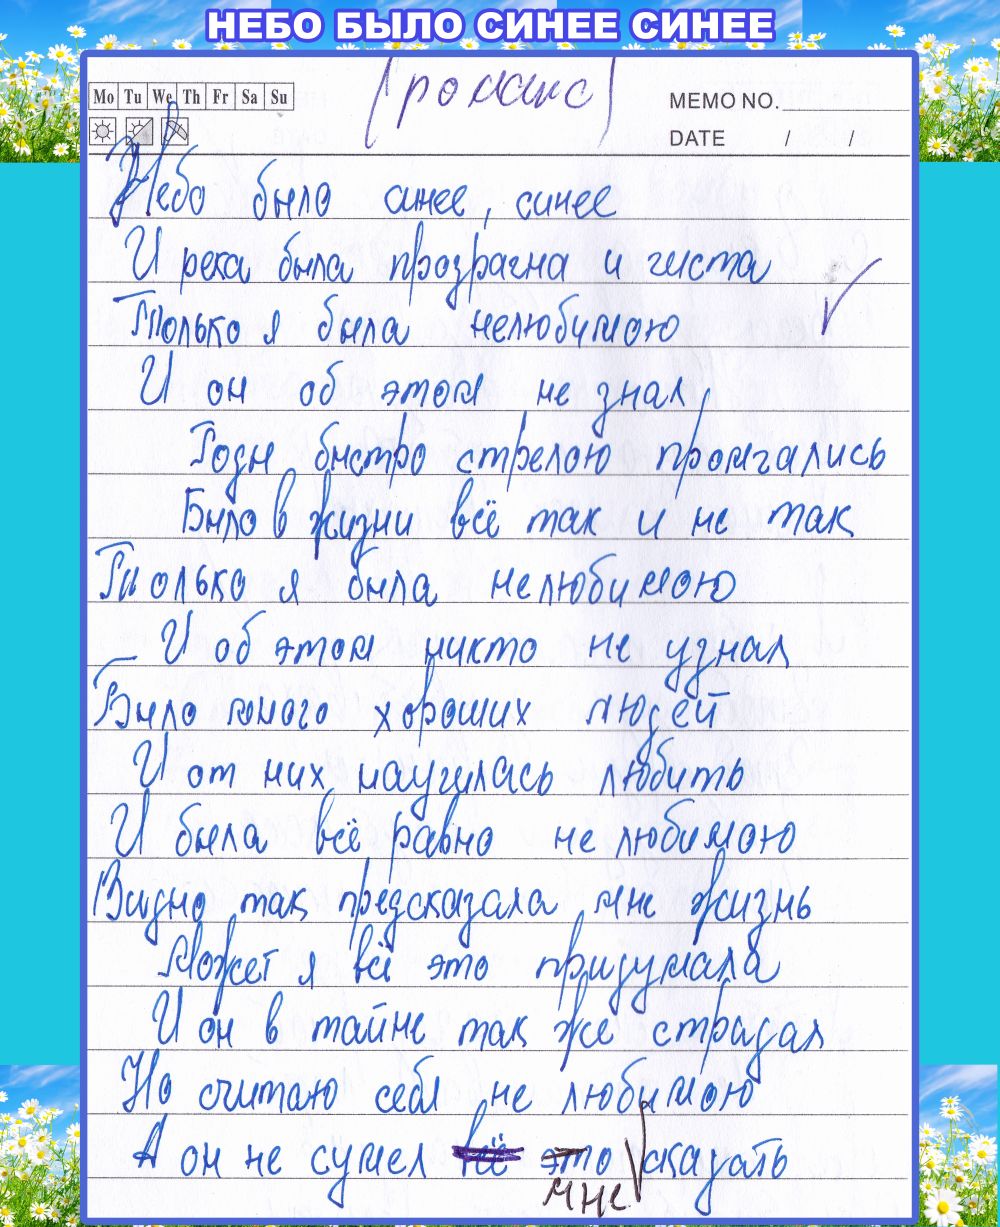 НЕБО БЫЛО СИНЕЕ СИНЕЕ
(романс)
Mo Tu We Th Fr Sa Su
MEMO NO.
DATE / /
Небо было синее, синее
И река была прозрачна и чиста
Только я была нелюбимою
И он об этом не знал,
Годы быстро стрелою промчались
Было в жизни всё так и не так
Только я была нелюбимою
И об этом никто не узнал
Было много хороших людей
И от них научилась любить
И была всё равно не любимою
Видно так предсказала мне жизнь
Может я всё это придумала
И он в тайне так же страдал
Но считаю себя не любимою
А он не сумел всё это сказать
мне